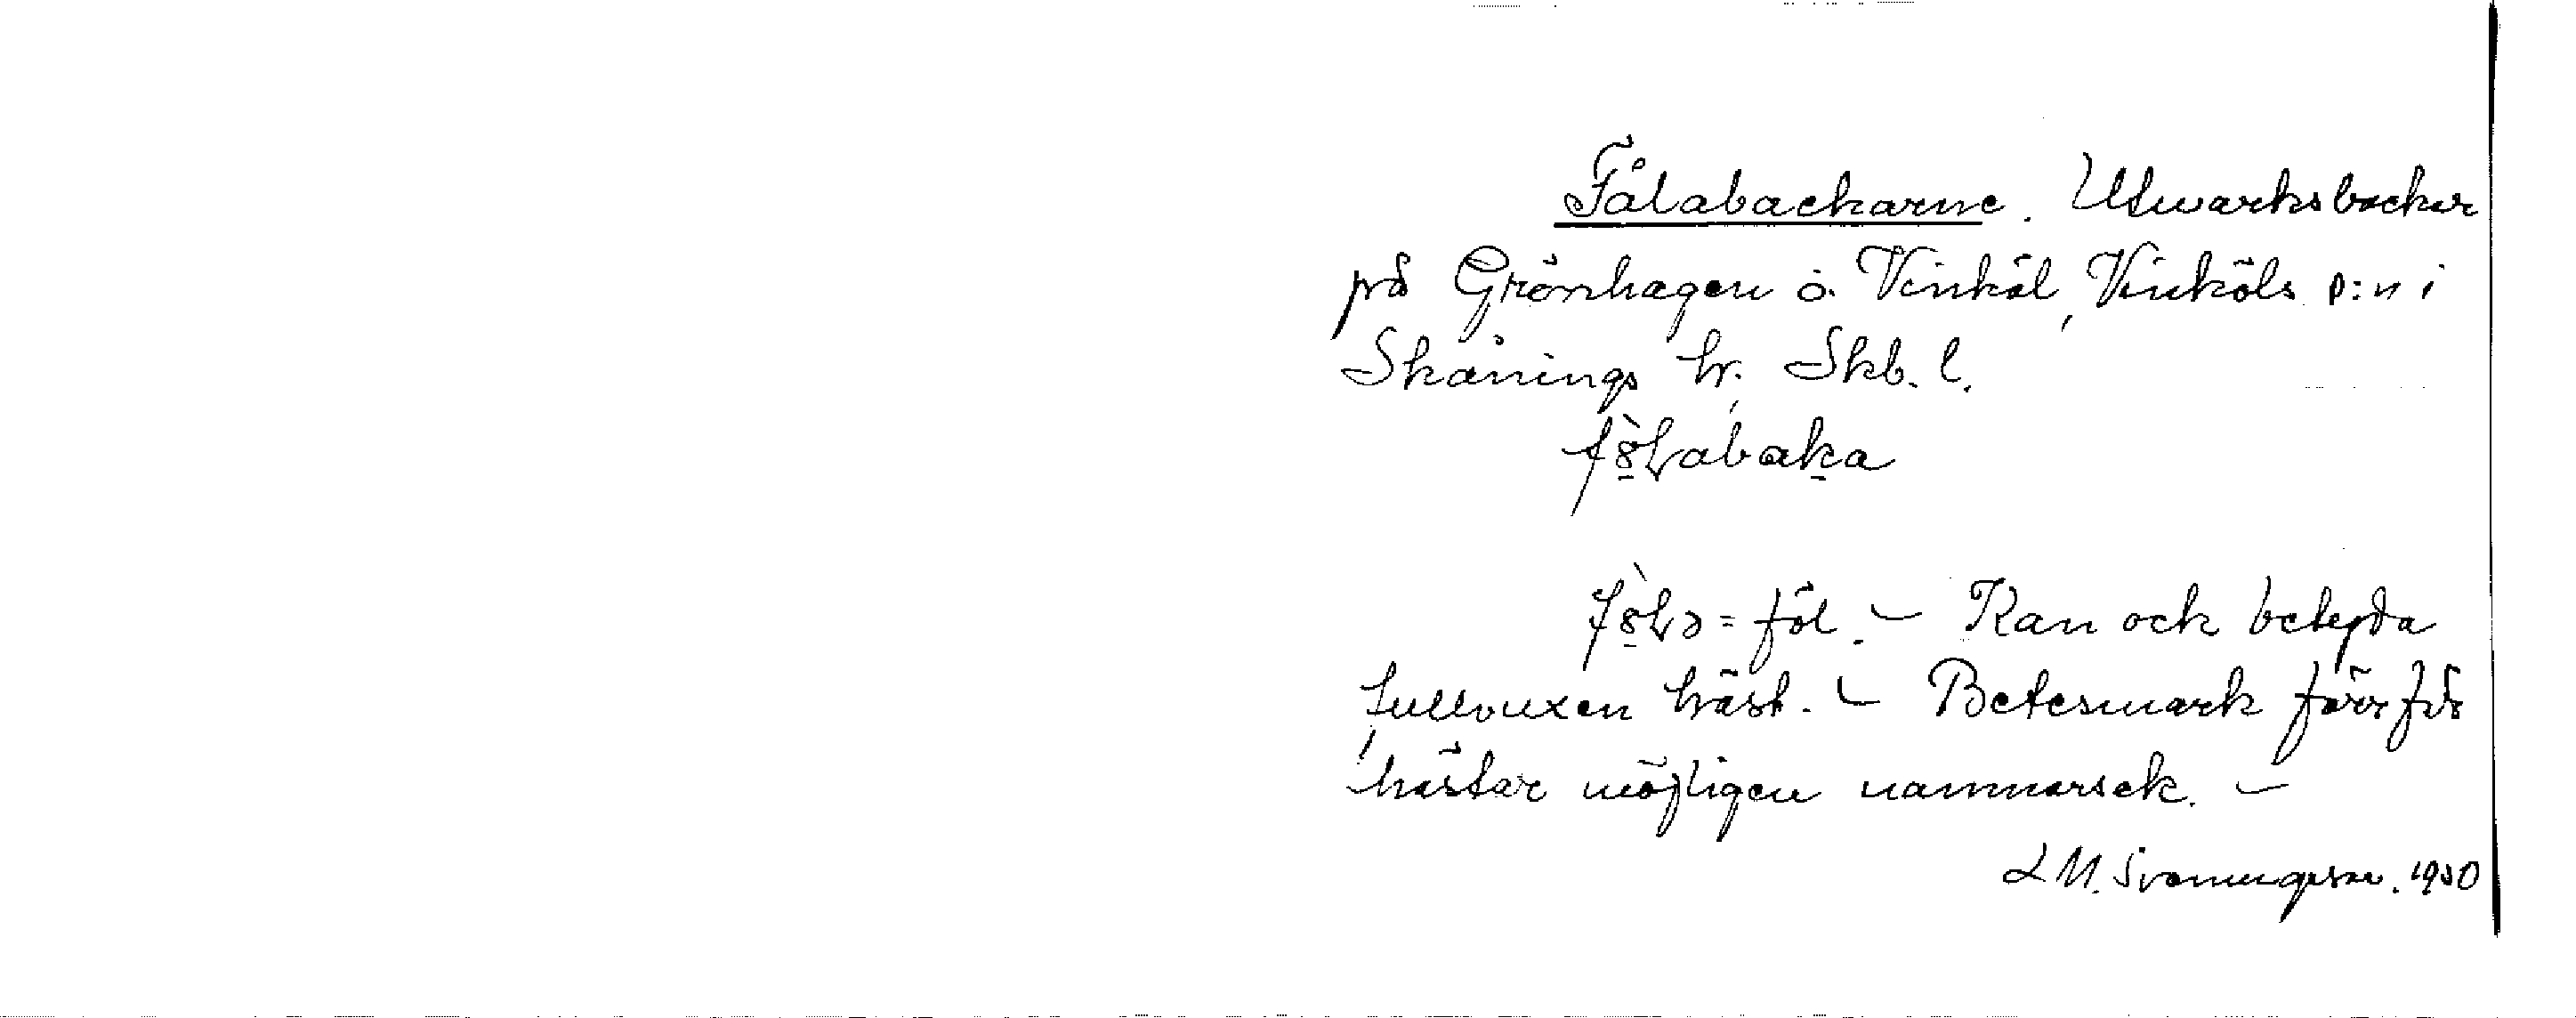 Fålabackarne. Utmarksbackar
på Grönhagen o. Vinköl, Vinköls s:n i
Skånings hr. Skb. l.
fòlabaka
= föl. – Kan ock betyda
fullvuxen häst. – Betesmark förr för
hästar möjligen namnorsak. –
L M. Svanungsson. 1930